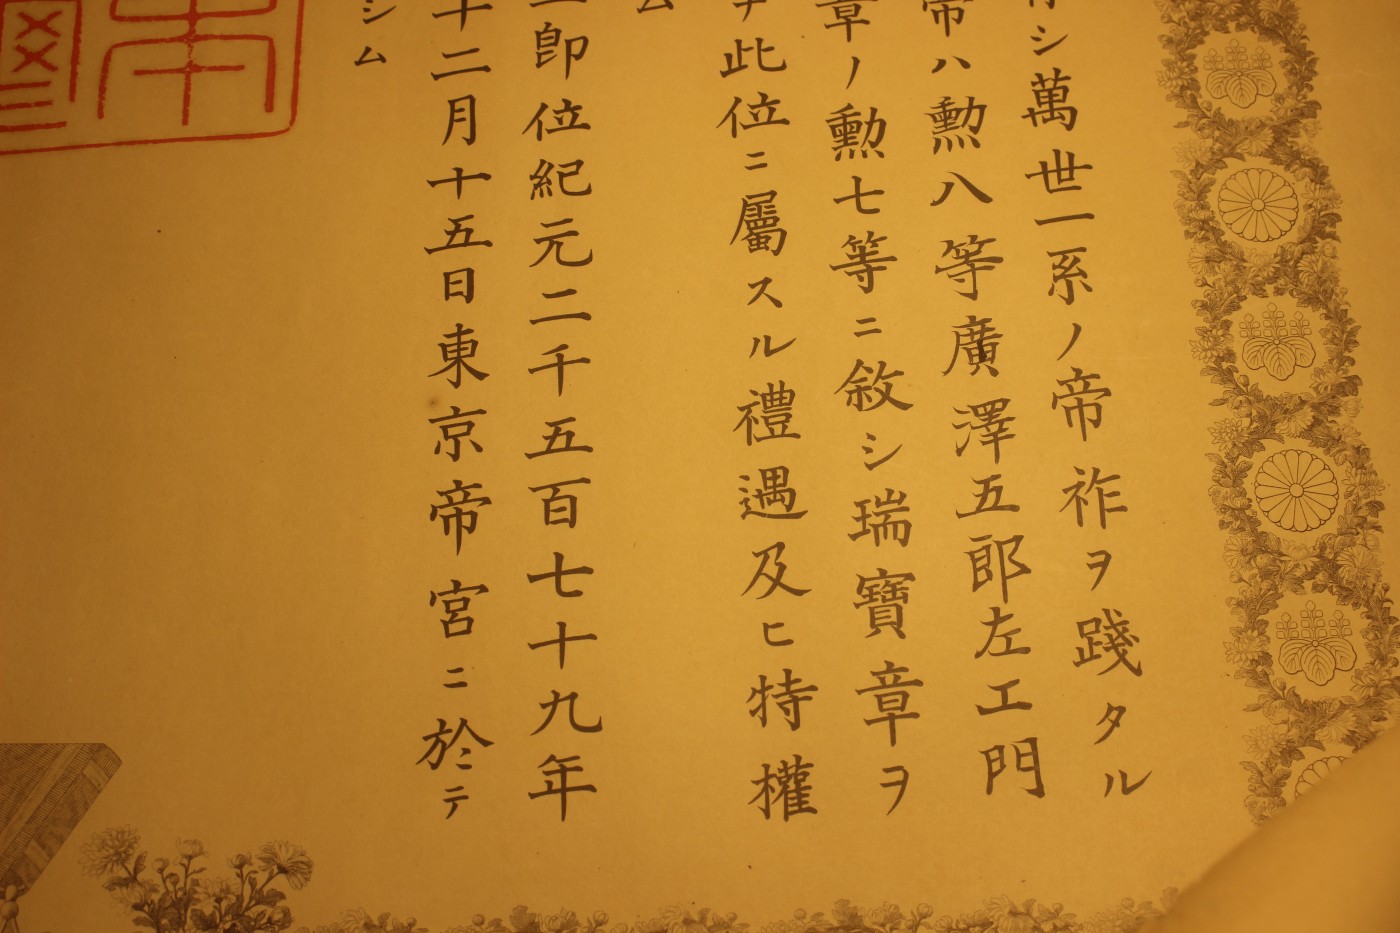 シ萬世一系ノ帝祚ヲ踐タル
帝ハ勲八等廣澤五郎左エ門
章ノ勲七等ニ敘シ瑞寶章ヲ
此位ニ屬スル禮遇及ヒ特權
ム
卽位紀元二千五百七十九年
十二月十五日東京帝宮ニ於テ
シム